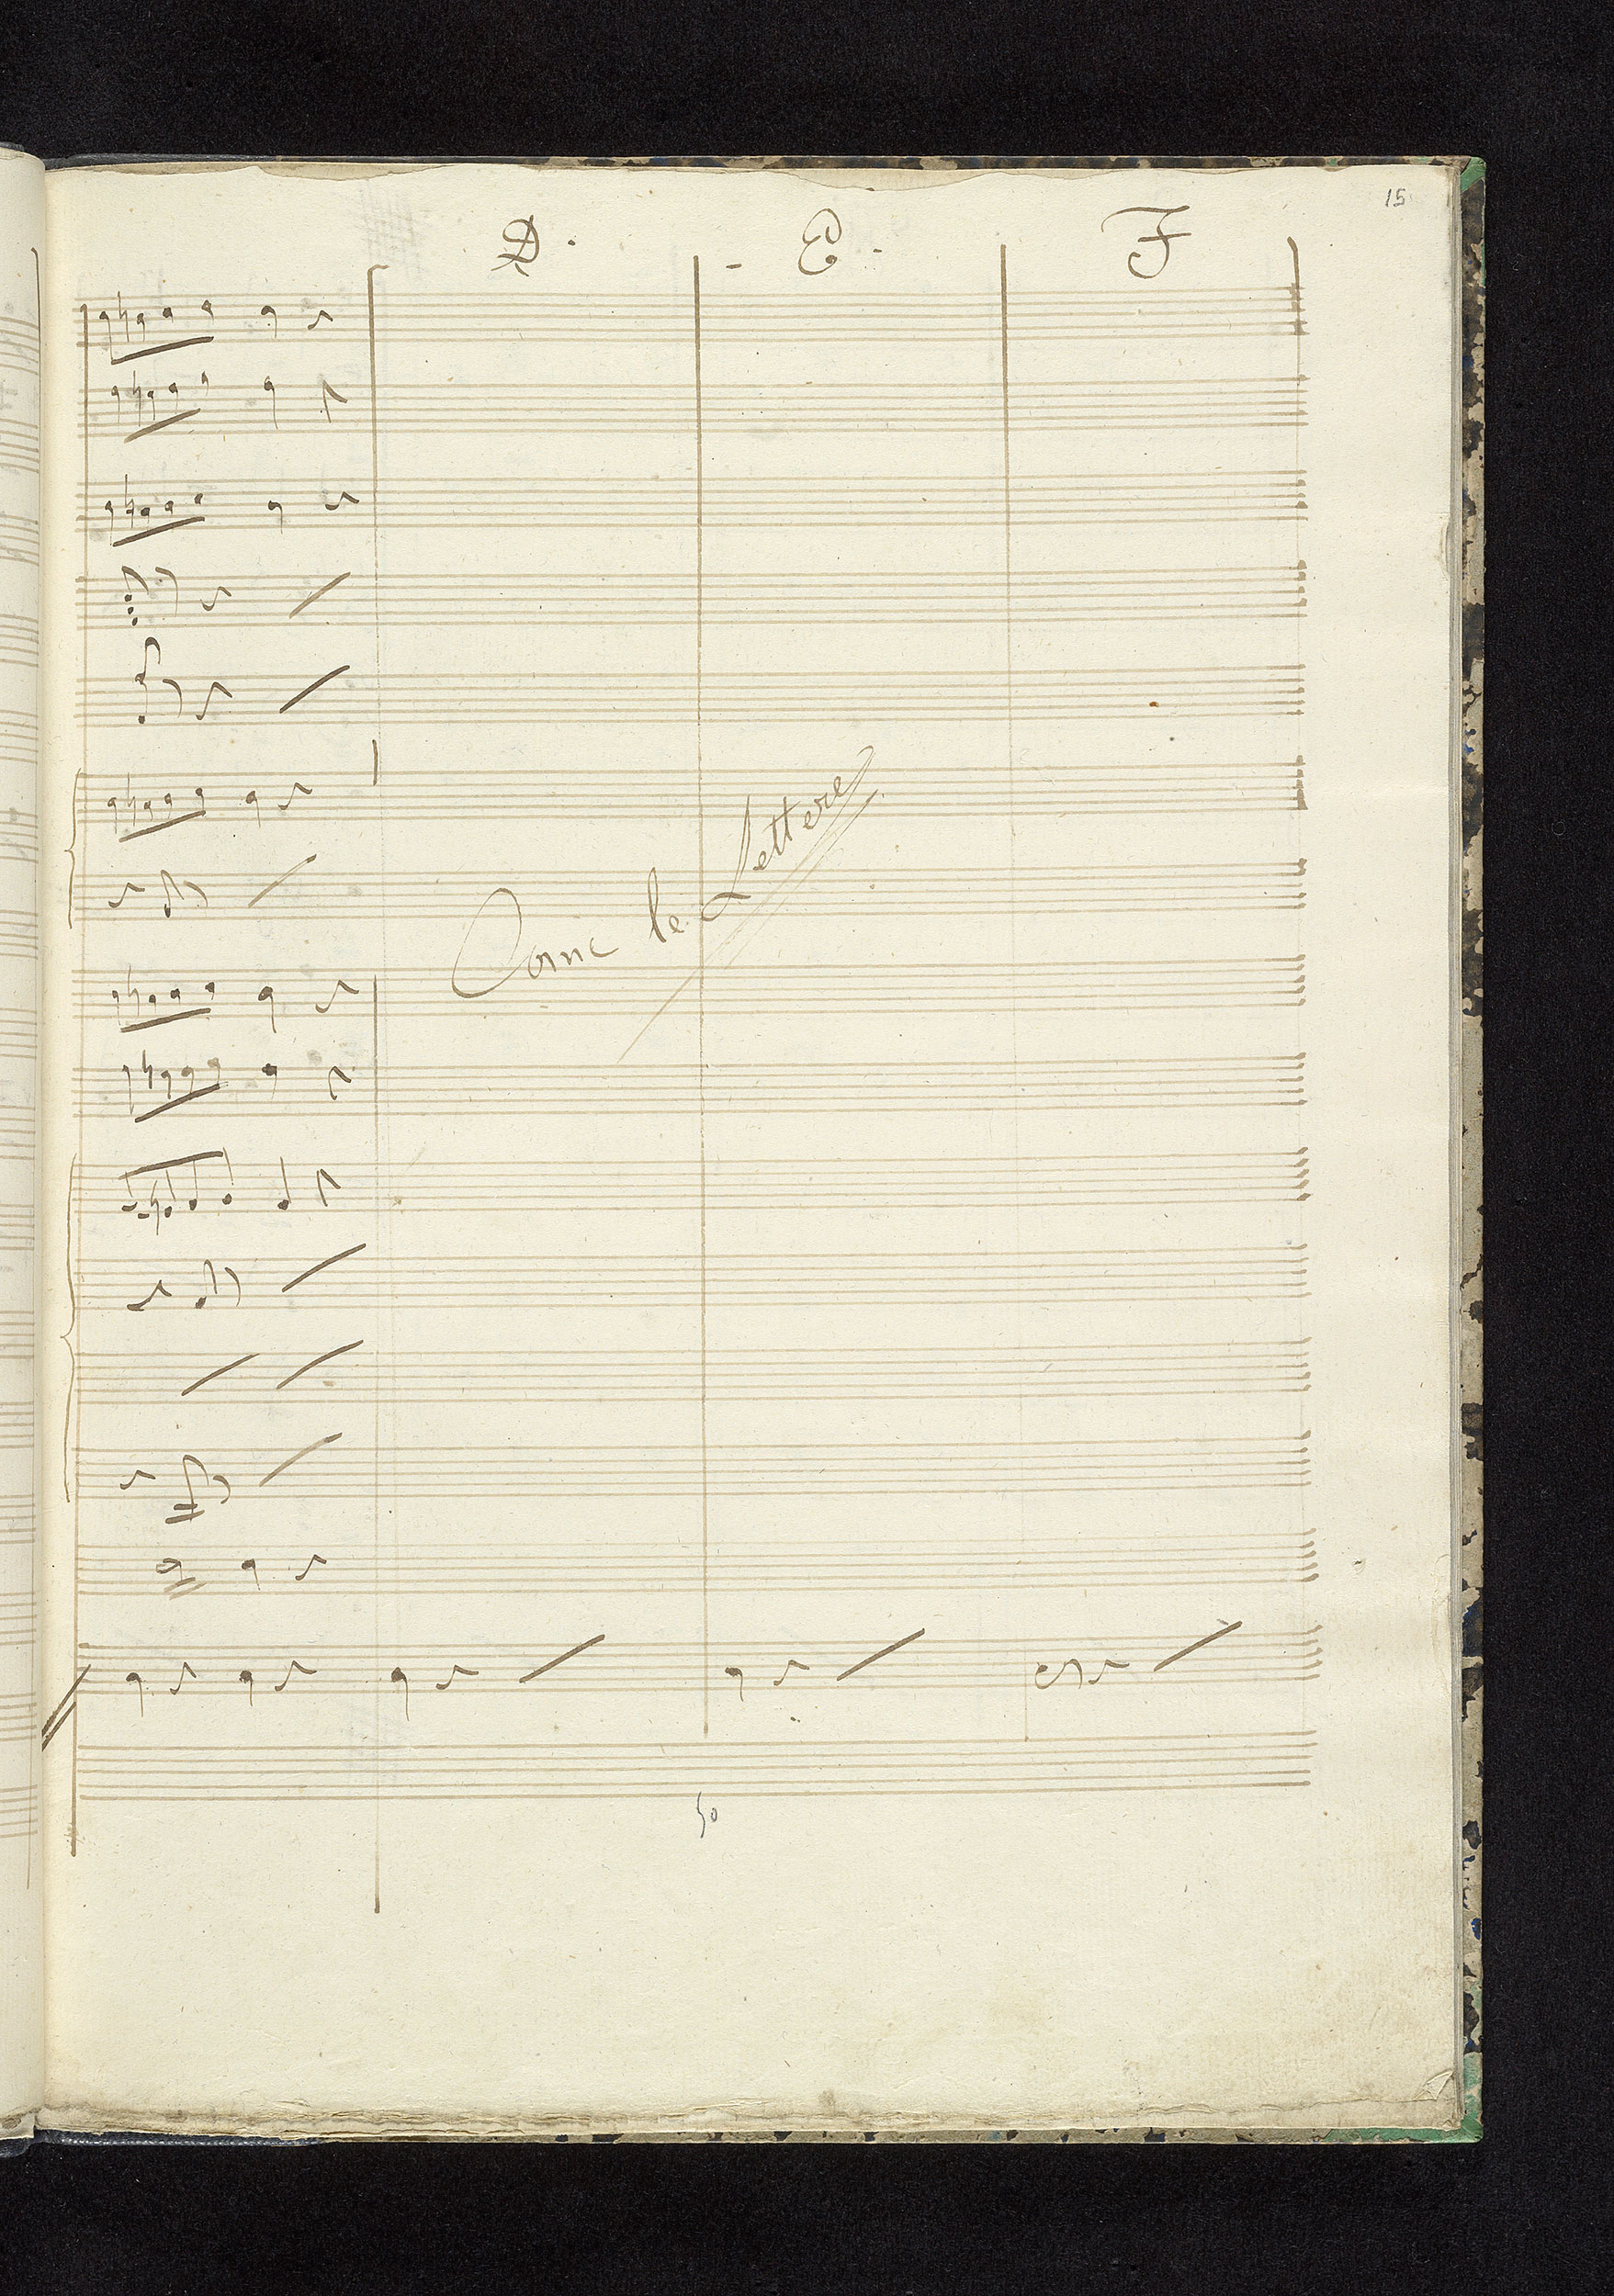 15
D. - E. - F
Come le Lettere
50